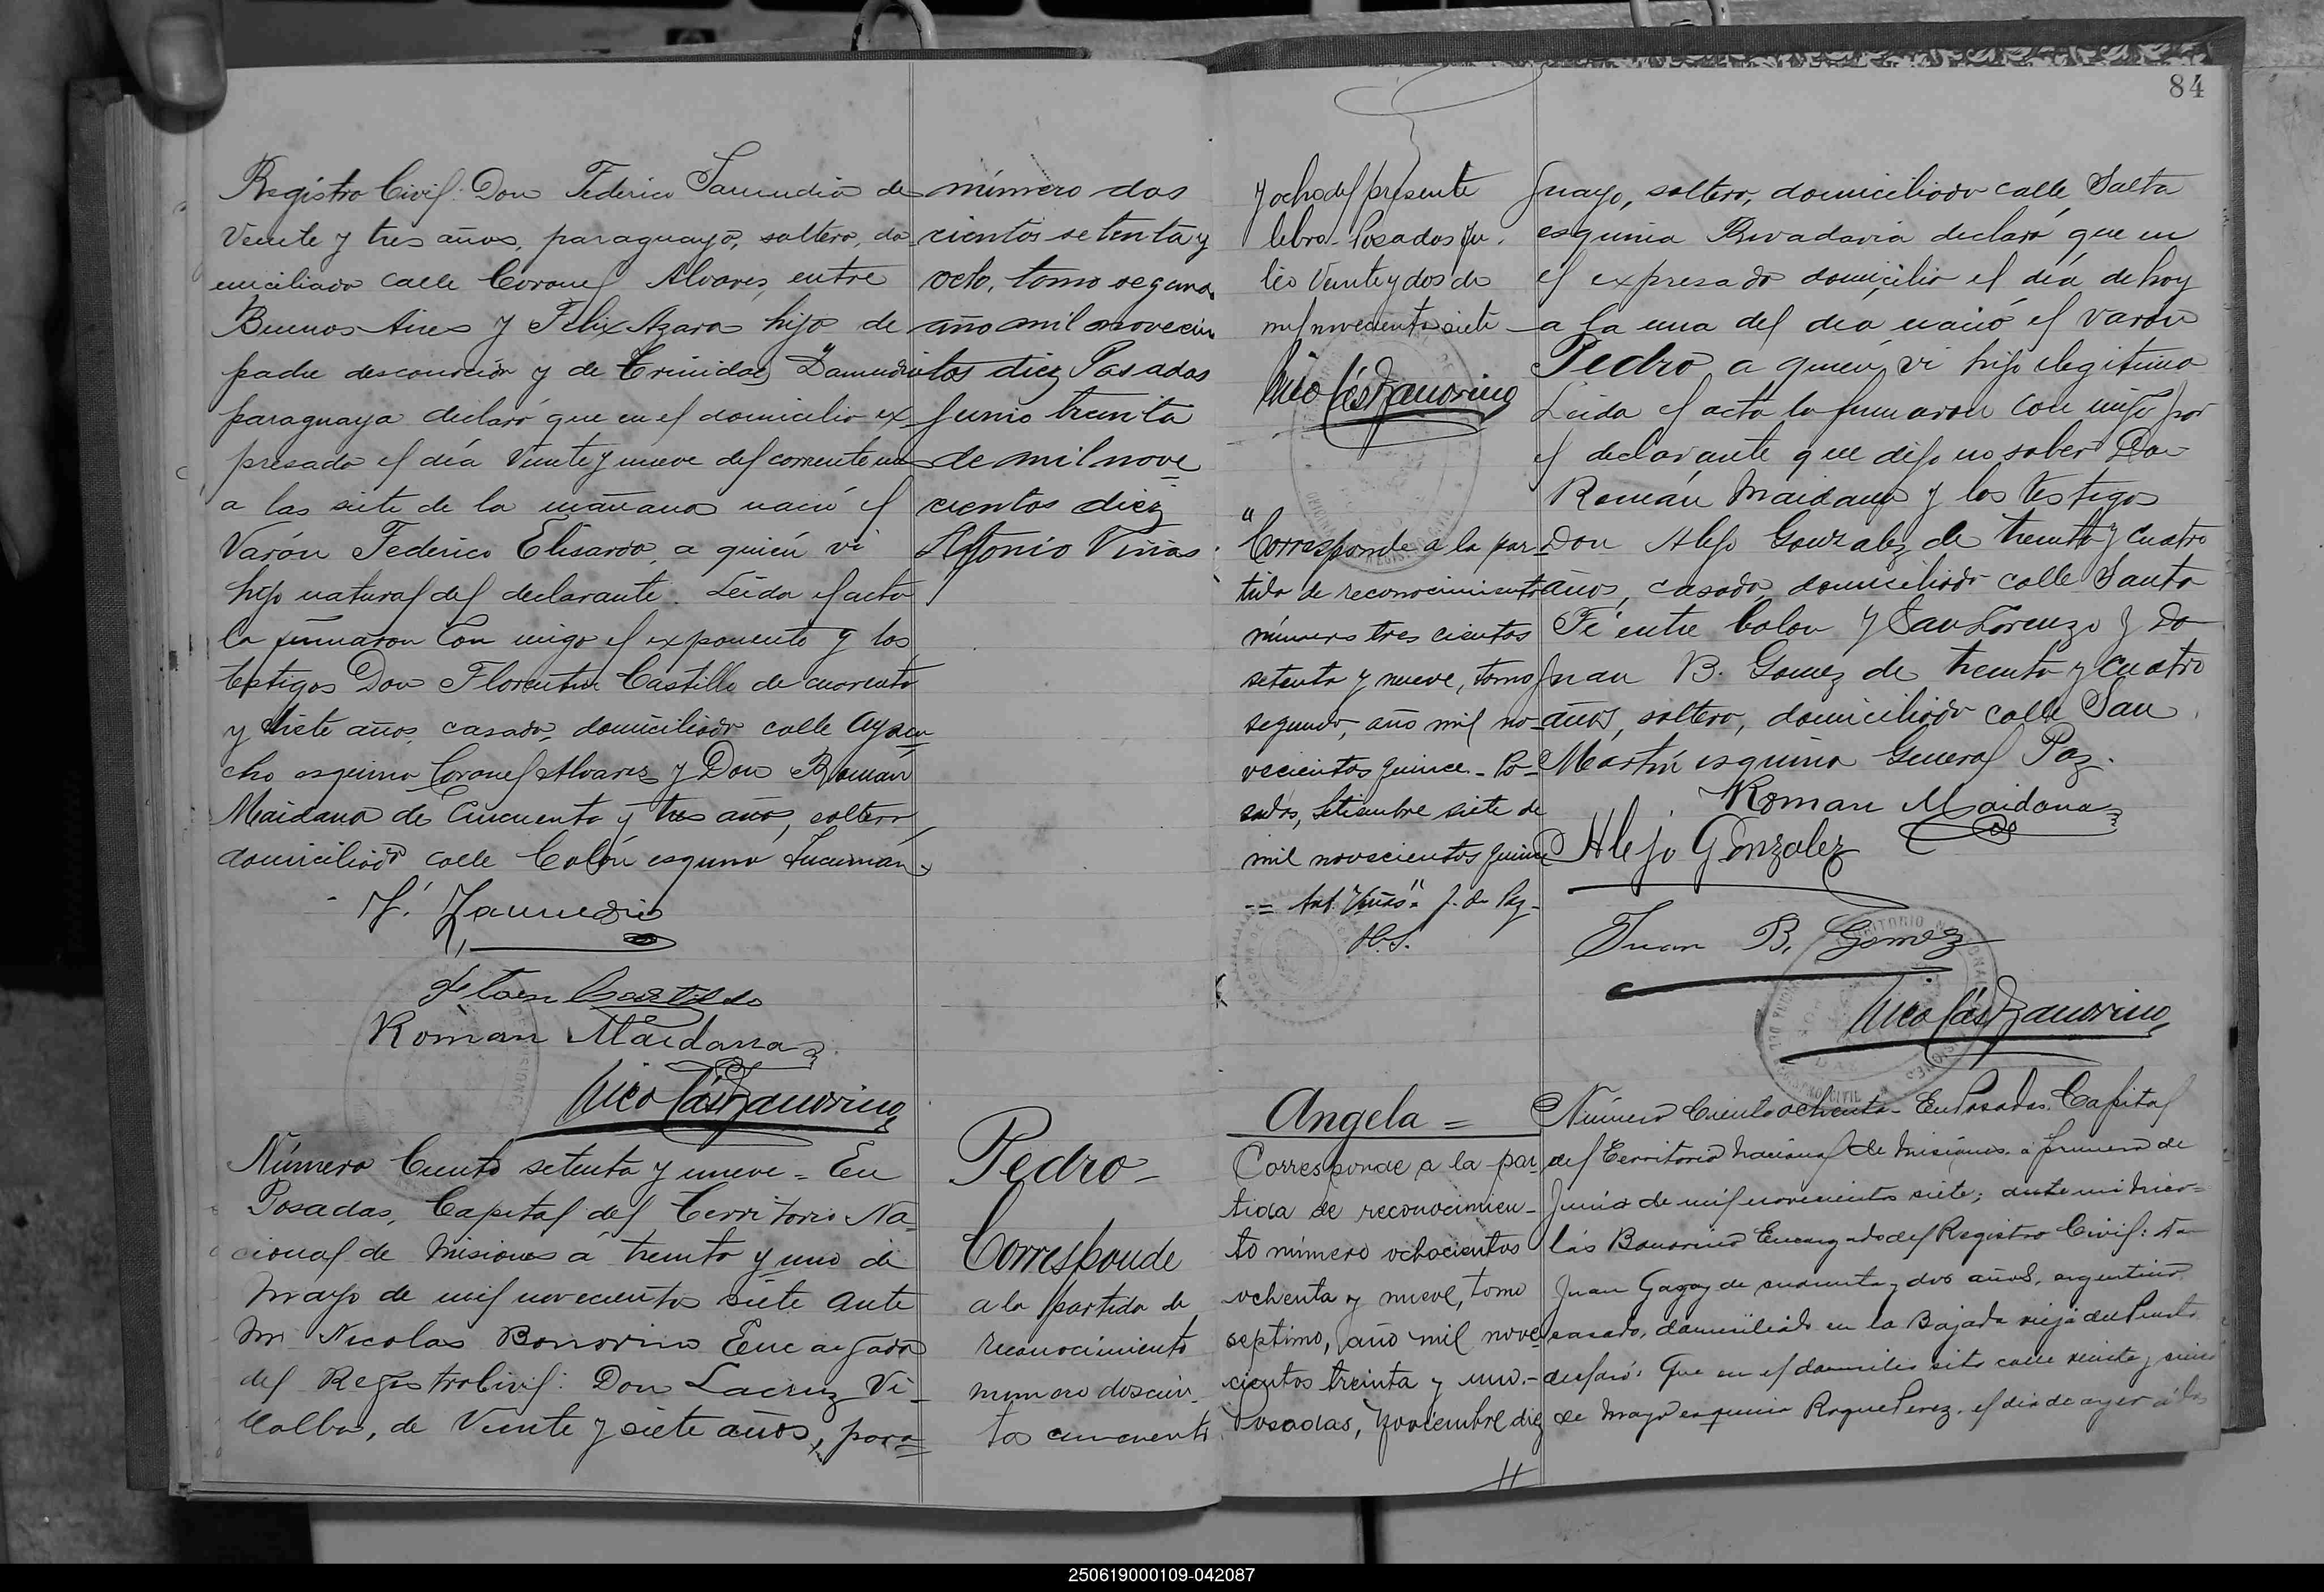 Registro Civil: Don Federico Samudio de
Veinte y tres años, paraguayo, soltero, do
miciliado calle Coronel Alvares, entre
Buenos Aires y Felix Azara hijo de
padre desconocido y de Trinidad Samudio
paraguaya declaró que en el domicilio ex
presado el día Veinte y nueve del corriente mes
a las siete de la mañana nació el
Varón Federico Elisardo, a quién vi
hijo natural del declarante. Leida el acta
la firmaron con migo el exponente y los
testigos Don Florentin Castillo de cuarenta
y siete años, casado, domiciliado calle Ayacu
cho esquina Coronel Alvarez y Don Román
Maidana de Cincuenta y tres años, soltero
domiciliado calle Colón esquina Tucumán.
F. Zamudio
Floren Castillo
Roman Maidana
Nicolás Bonorino
Número Ciento setenta y nueve = En
Posadas, Capital del Territorio Na
cional de Misiones á treinta y uno de
Mayo de mil novecientos siete ante
mi Nicolas Bonorino Encargado
del Registro Civil: Don Lacruz Vi-
llalba, de Veinte y siete años, para=
número dos
cientos setenta y
ocho, tomo segundo
año mil novecien
tos diez Posadas
Junio treinta
de mil nove
cientos diez
Antonio Viñas
Pedro-
Corresponde
a la partida de
reconocimiento
numero doscien
tos cincuenta
84
y ocho del presente
libro. Posadas Ju-
lio Veinte y dos de
mil novecientos siete
Nicolás Bonorino
"Corresponde a la par-
tida de reconocimiento
número tres cientos
setenta y nueve, tomo
segundo, año mil no-
vecientos quince. - Po-
sadas, Setiembre siete de
mil novecientos quince
-= Ant. "Viñas". J. de Paz-
H.S.
Angela =
Corresponde a la par
tida de reconocimien-
to número ochocientos
ochenta y nueve, tomo
septimo, año mil nove
cientos treinta y uno.-
Posadas, Noviembre diez
//
guayo, soltero, domiciliado calle Salta
esquina Rivadavia declaró que en
el expresado domicilio el día de hoy
a la una del dia nació el varón
Pedro, a quien vi hijo ilegitimo
Leida el acta la firmaron con migo por
el declarante que dijo no saber Don
Román Maidana y los testigos
Don Alejo Gonzalez de treinta y cuatro
años, casado, domiciliado calle Santa
Fé entre Colon y San Lorenzo y Don
Juan B. Gomez de treinta y cuatro
años, soltero, domiciliado calle San
Martín esquina General Paz.
Roman Maidana
Alejo Gonzalez
Juan B. Gomez
Nicolás Bonorino
Número Ciento ochenta - En Posadas, Capital
del Territorio Nacional de Misiones á primero de
Junio de mil novecientos siete; ante mi Nico=
lás Bonorino Encargado del Registro Civil: Don
Juan Gagoy de cuarenta y dos años, argentino
casado, domiciliado en la Bajada vieja del Puerto
declaró: Que en el domicilio sito calle veinte y cinco
de Mayo esquina Roque Perez, el dia de ayer á las
250619000109-042087